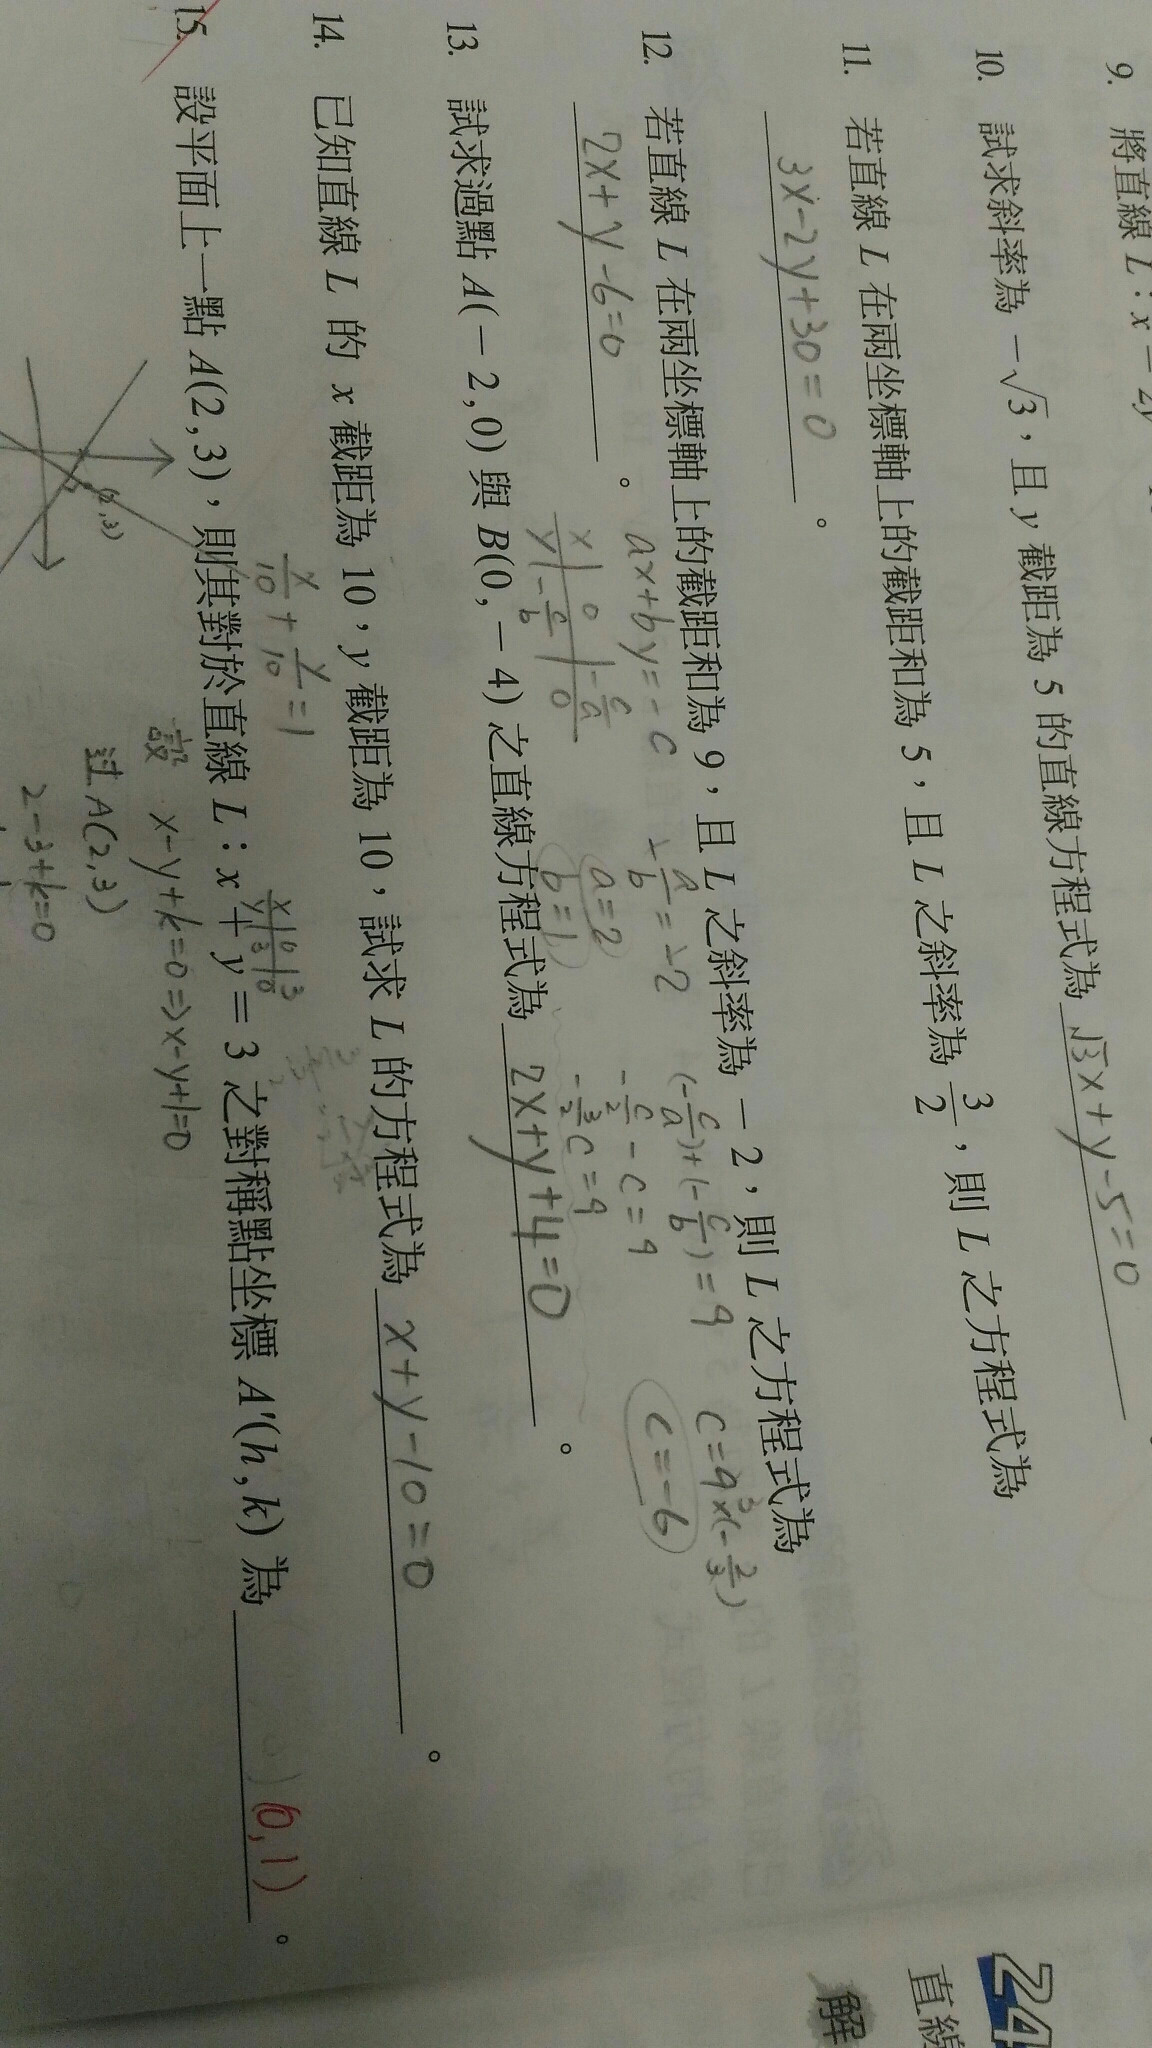 9. 將直線 L : x − 2y
10. 試求斜率為 −√3，且 y 截距為 5 的直線方程式為 √3x+y-5=0
11. 若直線 L 在兩坐標軸上的截距和為 5，且 L 之斜率為 3/2，則 L 之方程式為
3x-2y+30=0 。
12. 若直線 L 在兩坐標軸上的截距和為 9，且 L 之斜率為 −2，則 L 之方程式為
2x+y-6=0 。
ax+by=-c
-a/b=-2
(-c/a)+(-c/b)=9
c=9x(-2/3)
x 0 -c/a
y -c/b 0
a=2
b=1
-c/2-c=9
-3/2c=9
c=-6
13. 試求過點 A(−2,0) 與 B(0,−4) 之直線方程式為 2x+y+4=0 。
14. 已知直線 L 的 x 截距為 10，y 截距為 10，試求 L 的方程式為 x+y-10=0 。
x/10+y/10=1
x 0 3
y 3 0
15. 設平面上一點 A(2,3)，則其對於直線 L : x + y = 3 之對稱點坐標 A'(h,k) 為 (0,1) 。
(2,3)
設 x-y+k=0⇒x-y+1=0
过A(2,3)
2-3+k=0
24
直線
解